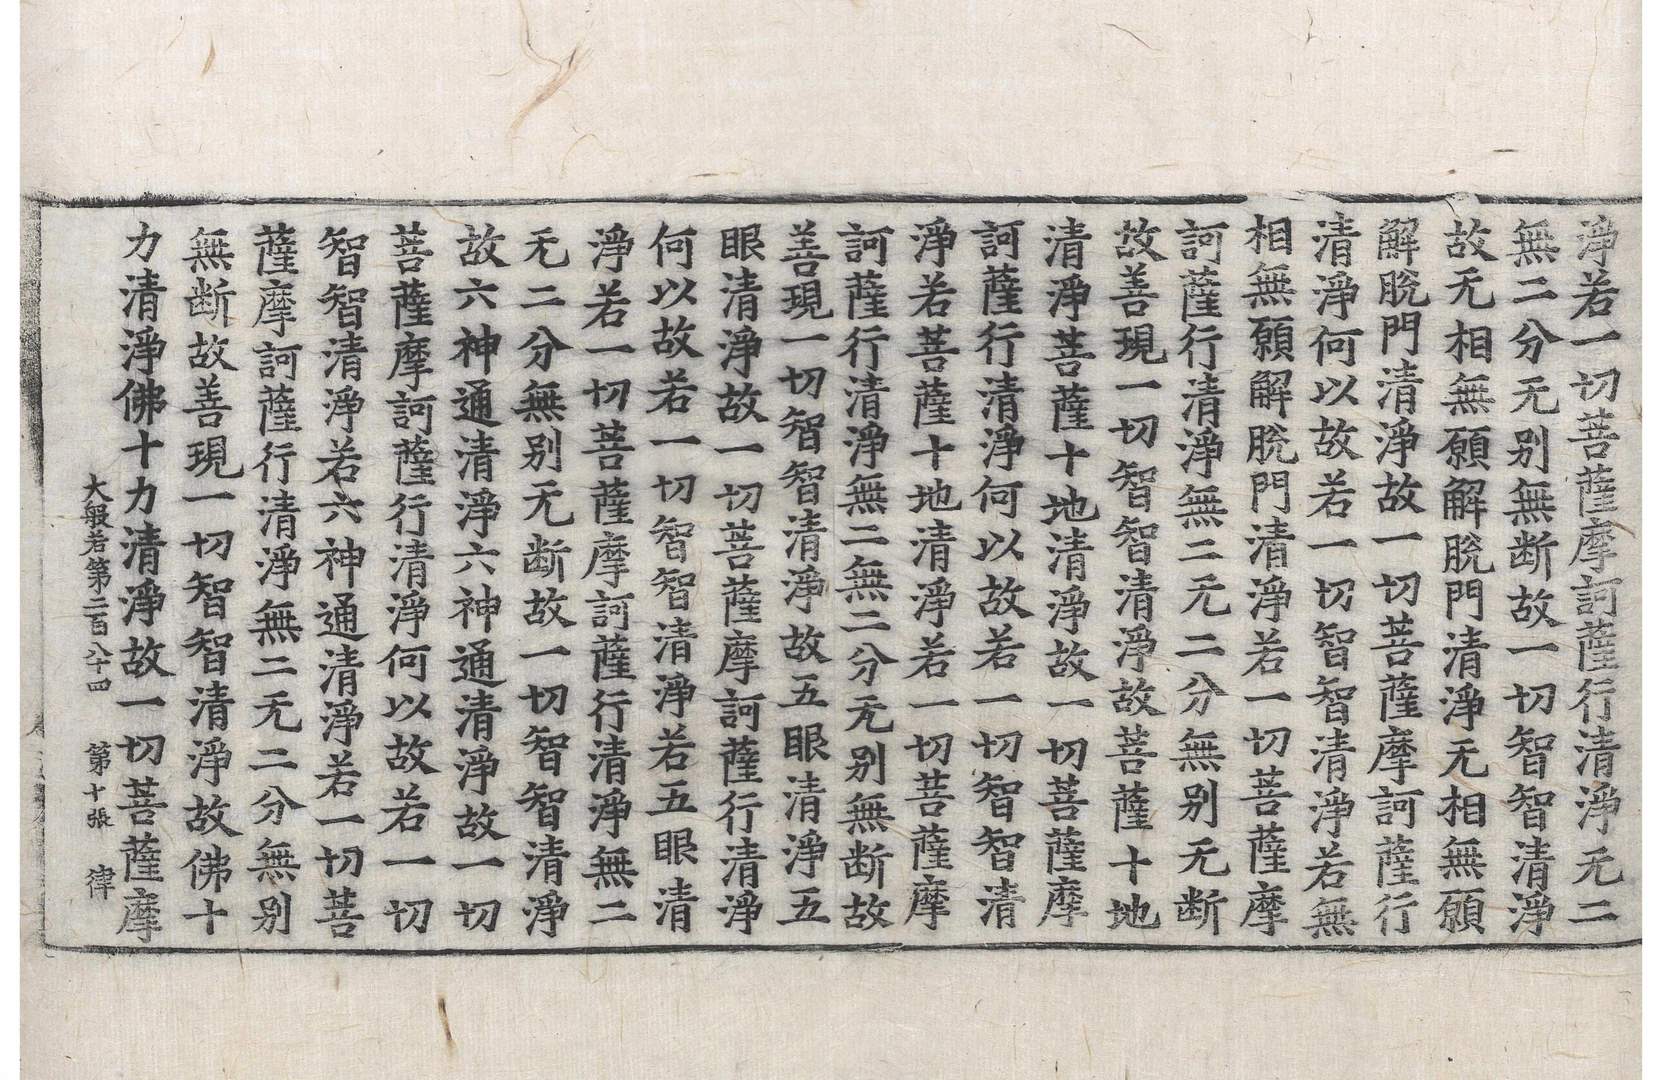 淨若一切菩薩摩訶薩行清淨无二
無二分无别無断故一切智智清淨
故无相無願解脫門清淨无相無願
解脫門清淨故一切菩薩摩訶薩行
清淨何以故若一切智智清淨若無
相無願解脫門清淨若一切菩薩摩
訶薩行清淨無二无二分無别无断
故善現一切智智清淨故菩薩十地
清淨菩薩十地清淨故一切菩薩摩
訶薩行清淨何以故若一切智智清
淨若菩薩十地清淨若一切菩薩摩
訶薩行清淨無二無二分无别無断故
善現一切智智清淨故五眼清淨五
眼清淨故一切菩薩摩訶薩行清淨
何以故若一切智智清淨若五眼清
淨若一切菩薩摩訶薩行清淨無二
无二分無别无断故一切智智清淨
故六神通清淨六神通清淨故一切
菩薩摩訶薩行清淨何以故若一切
智智清淨若六神通清淨若一切菩
薩摩訶薩行清淨無二无二分無别
無断故善現一切智智清淨故佛十
力清淨佛十力清淨故一切菩薩摩
大般若第二百八十四 第十張 律